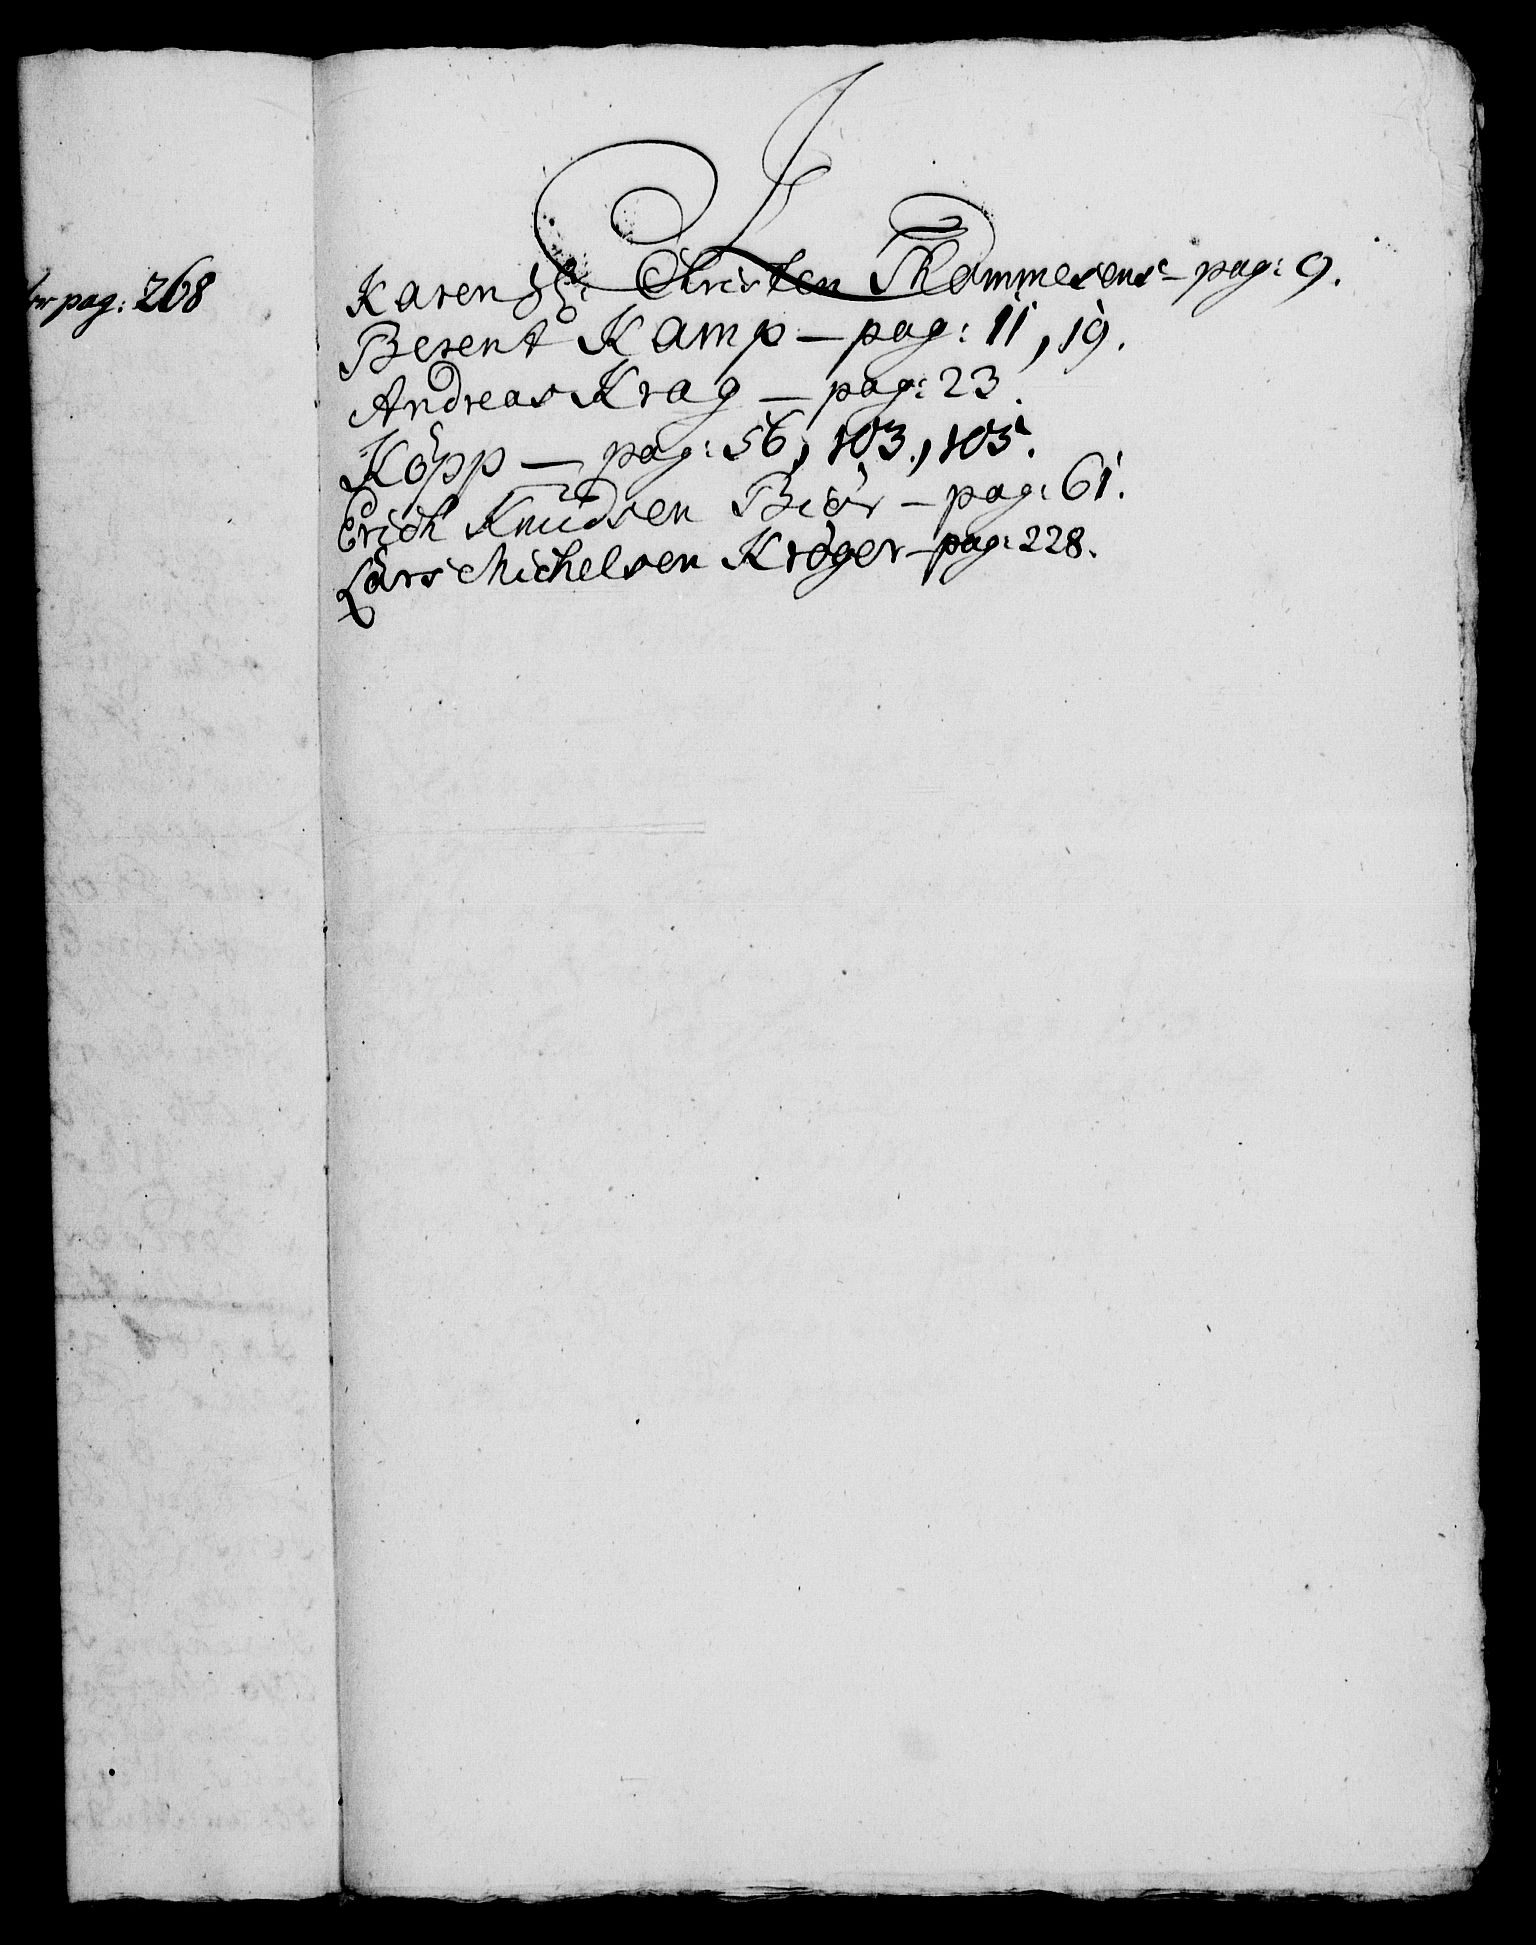 K
Karen Sl: Christen Thommesens – pag: 9.
Berent Kamp – pag: 11, 19.
Andreas Krag – pag: 23.
Köpp – pag: 56, 103., 105.
Erich Knudsen Biör – pag: 61.
Lars Michelsen Kröger – pag: 228.
pag: 268